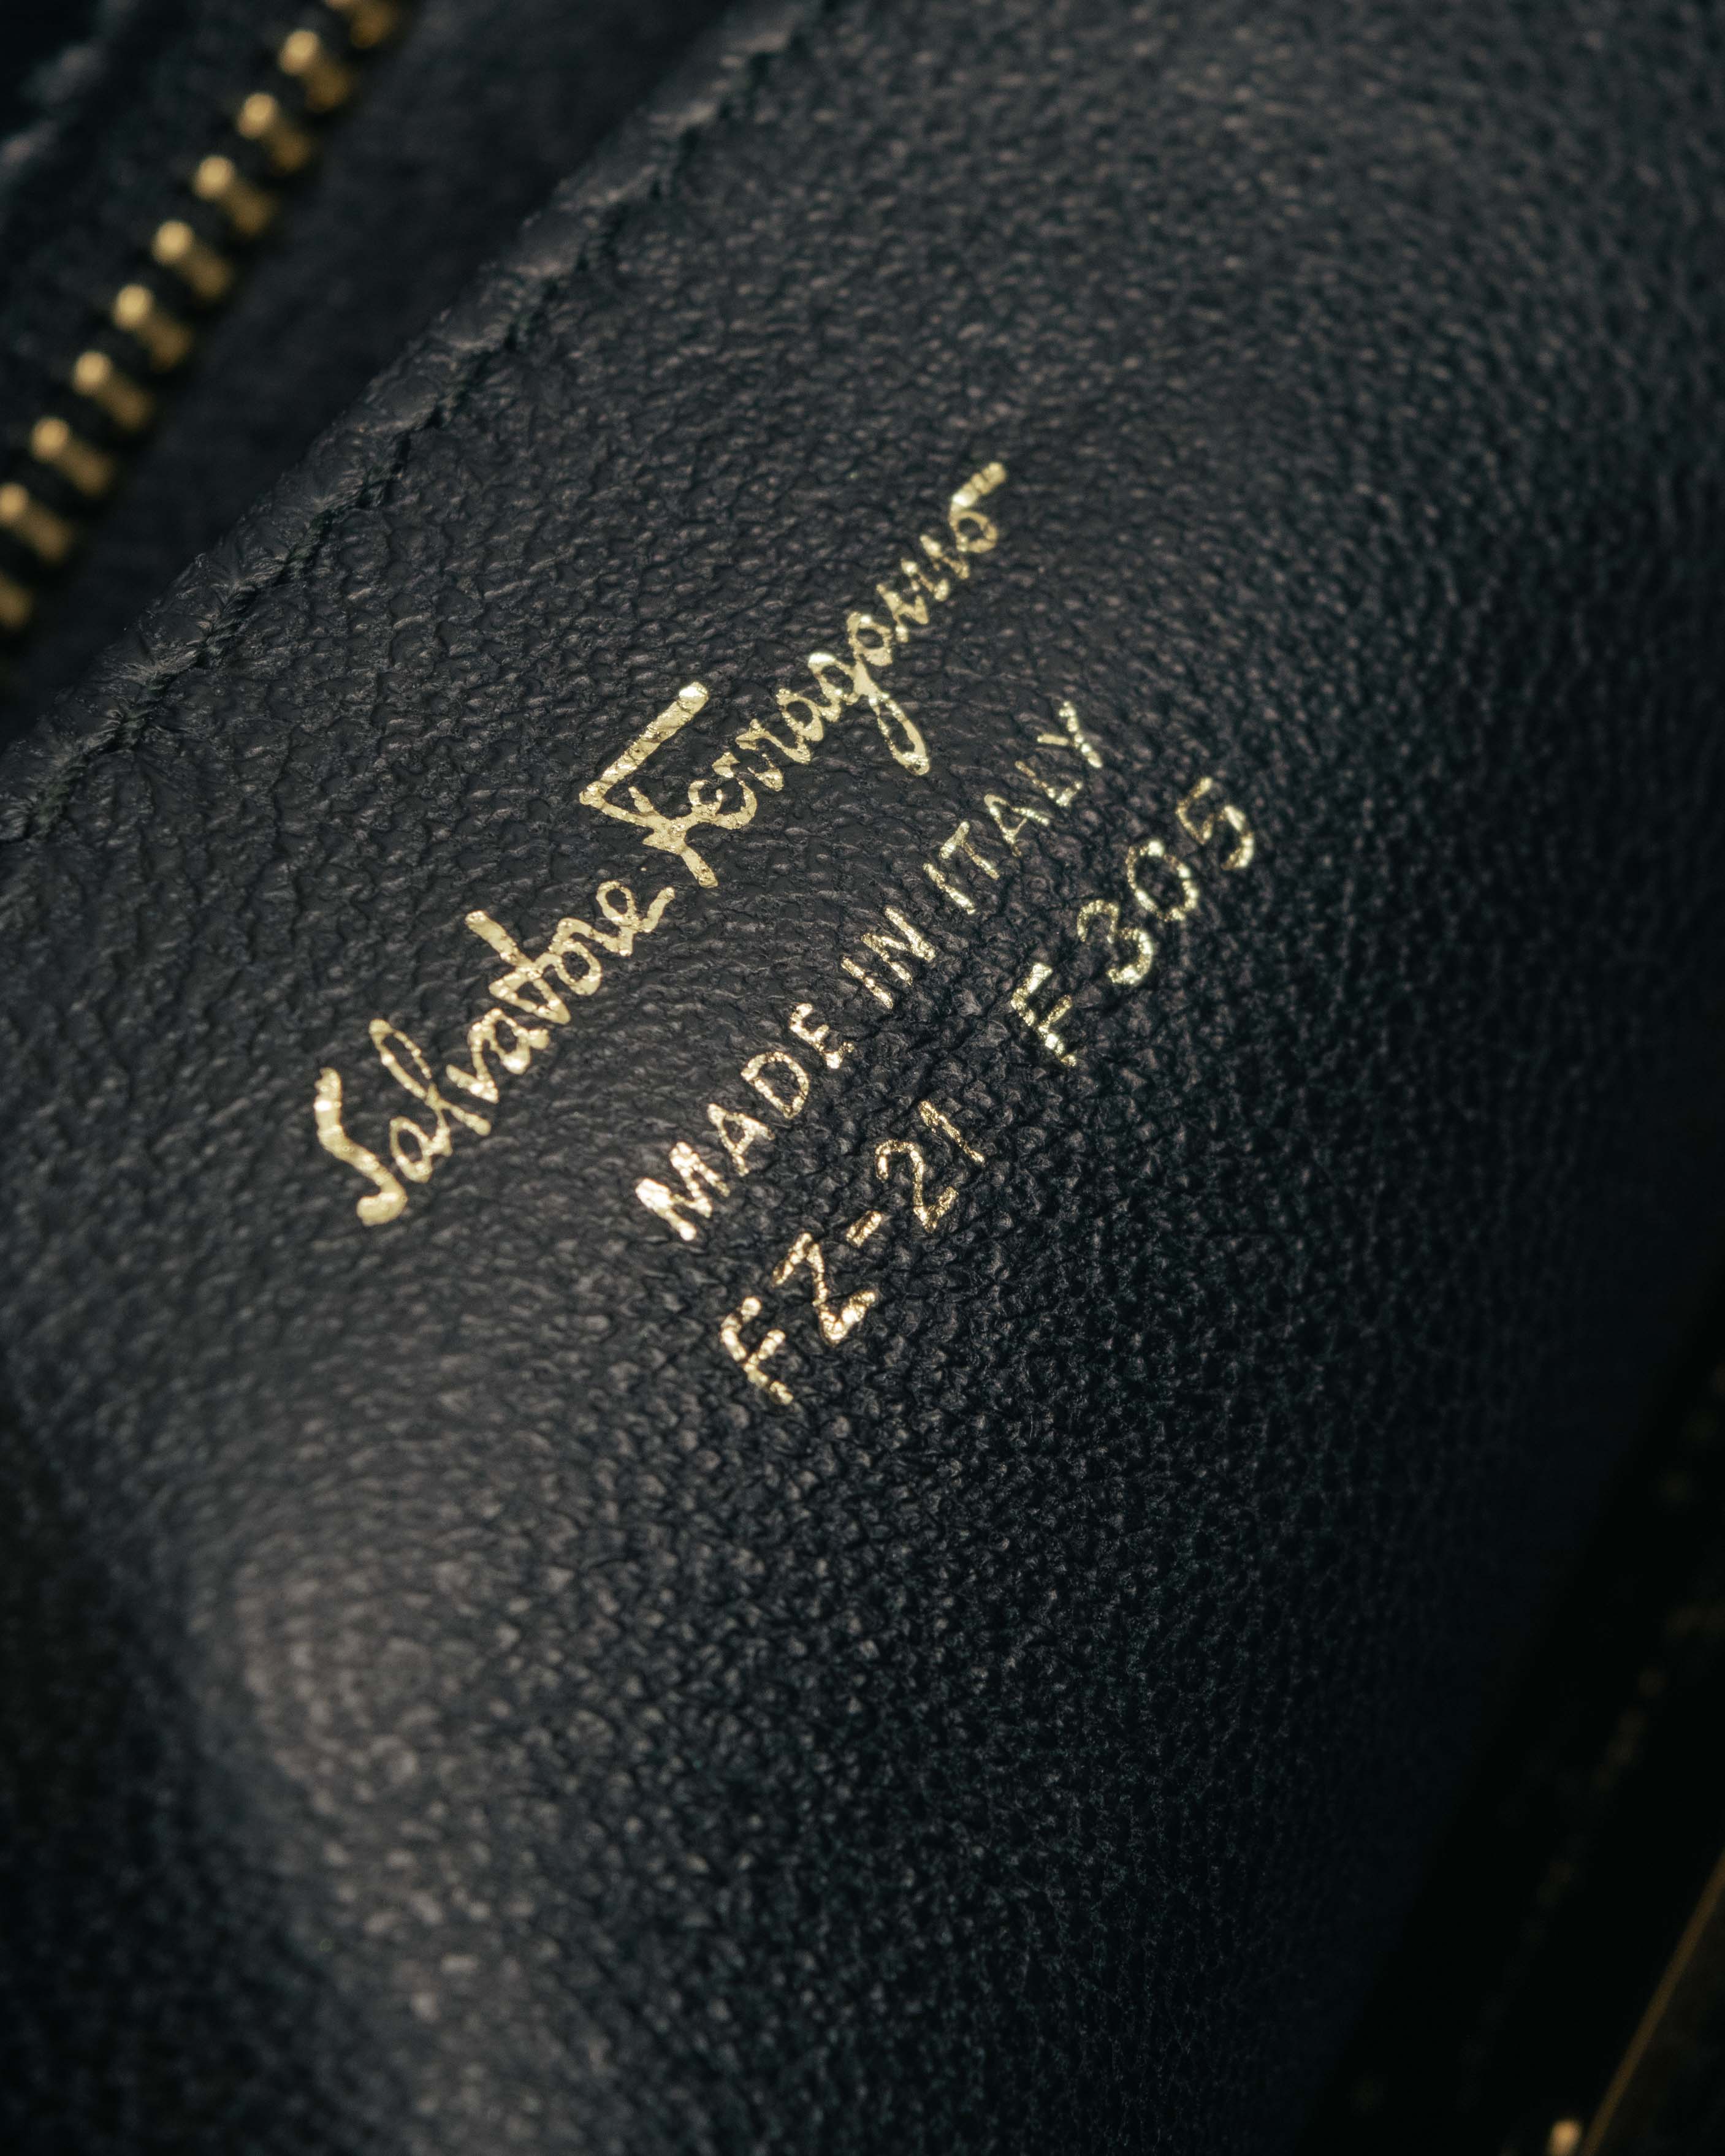 Salvatore Ferragamo
MADE IN ITALY
FZ-21 F305